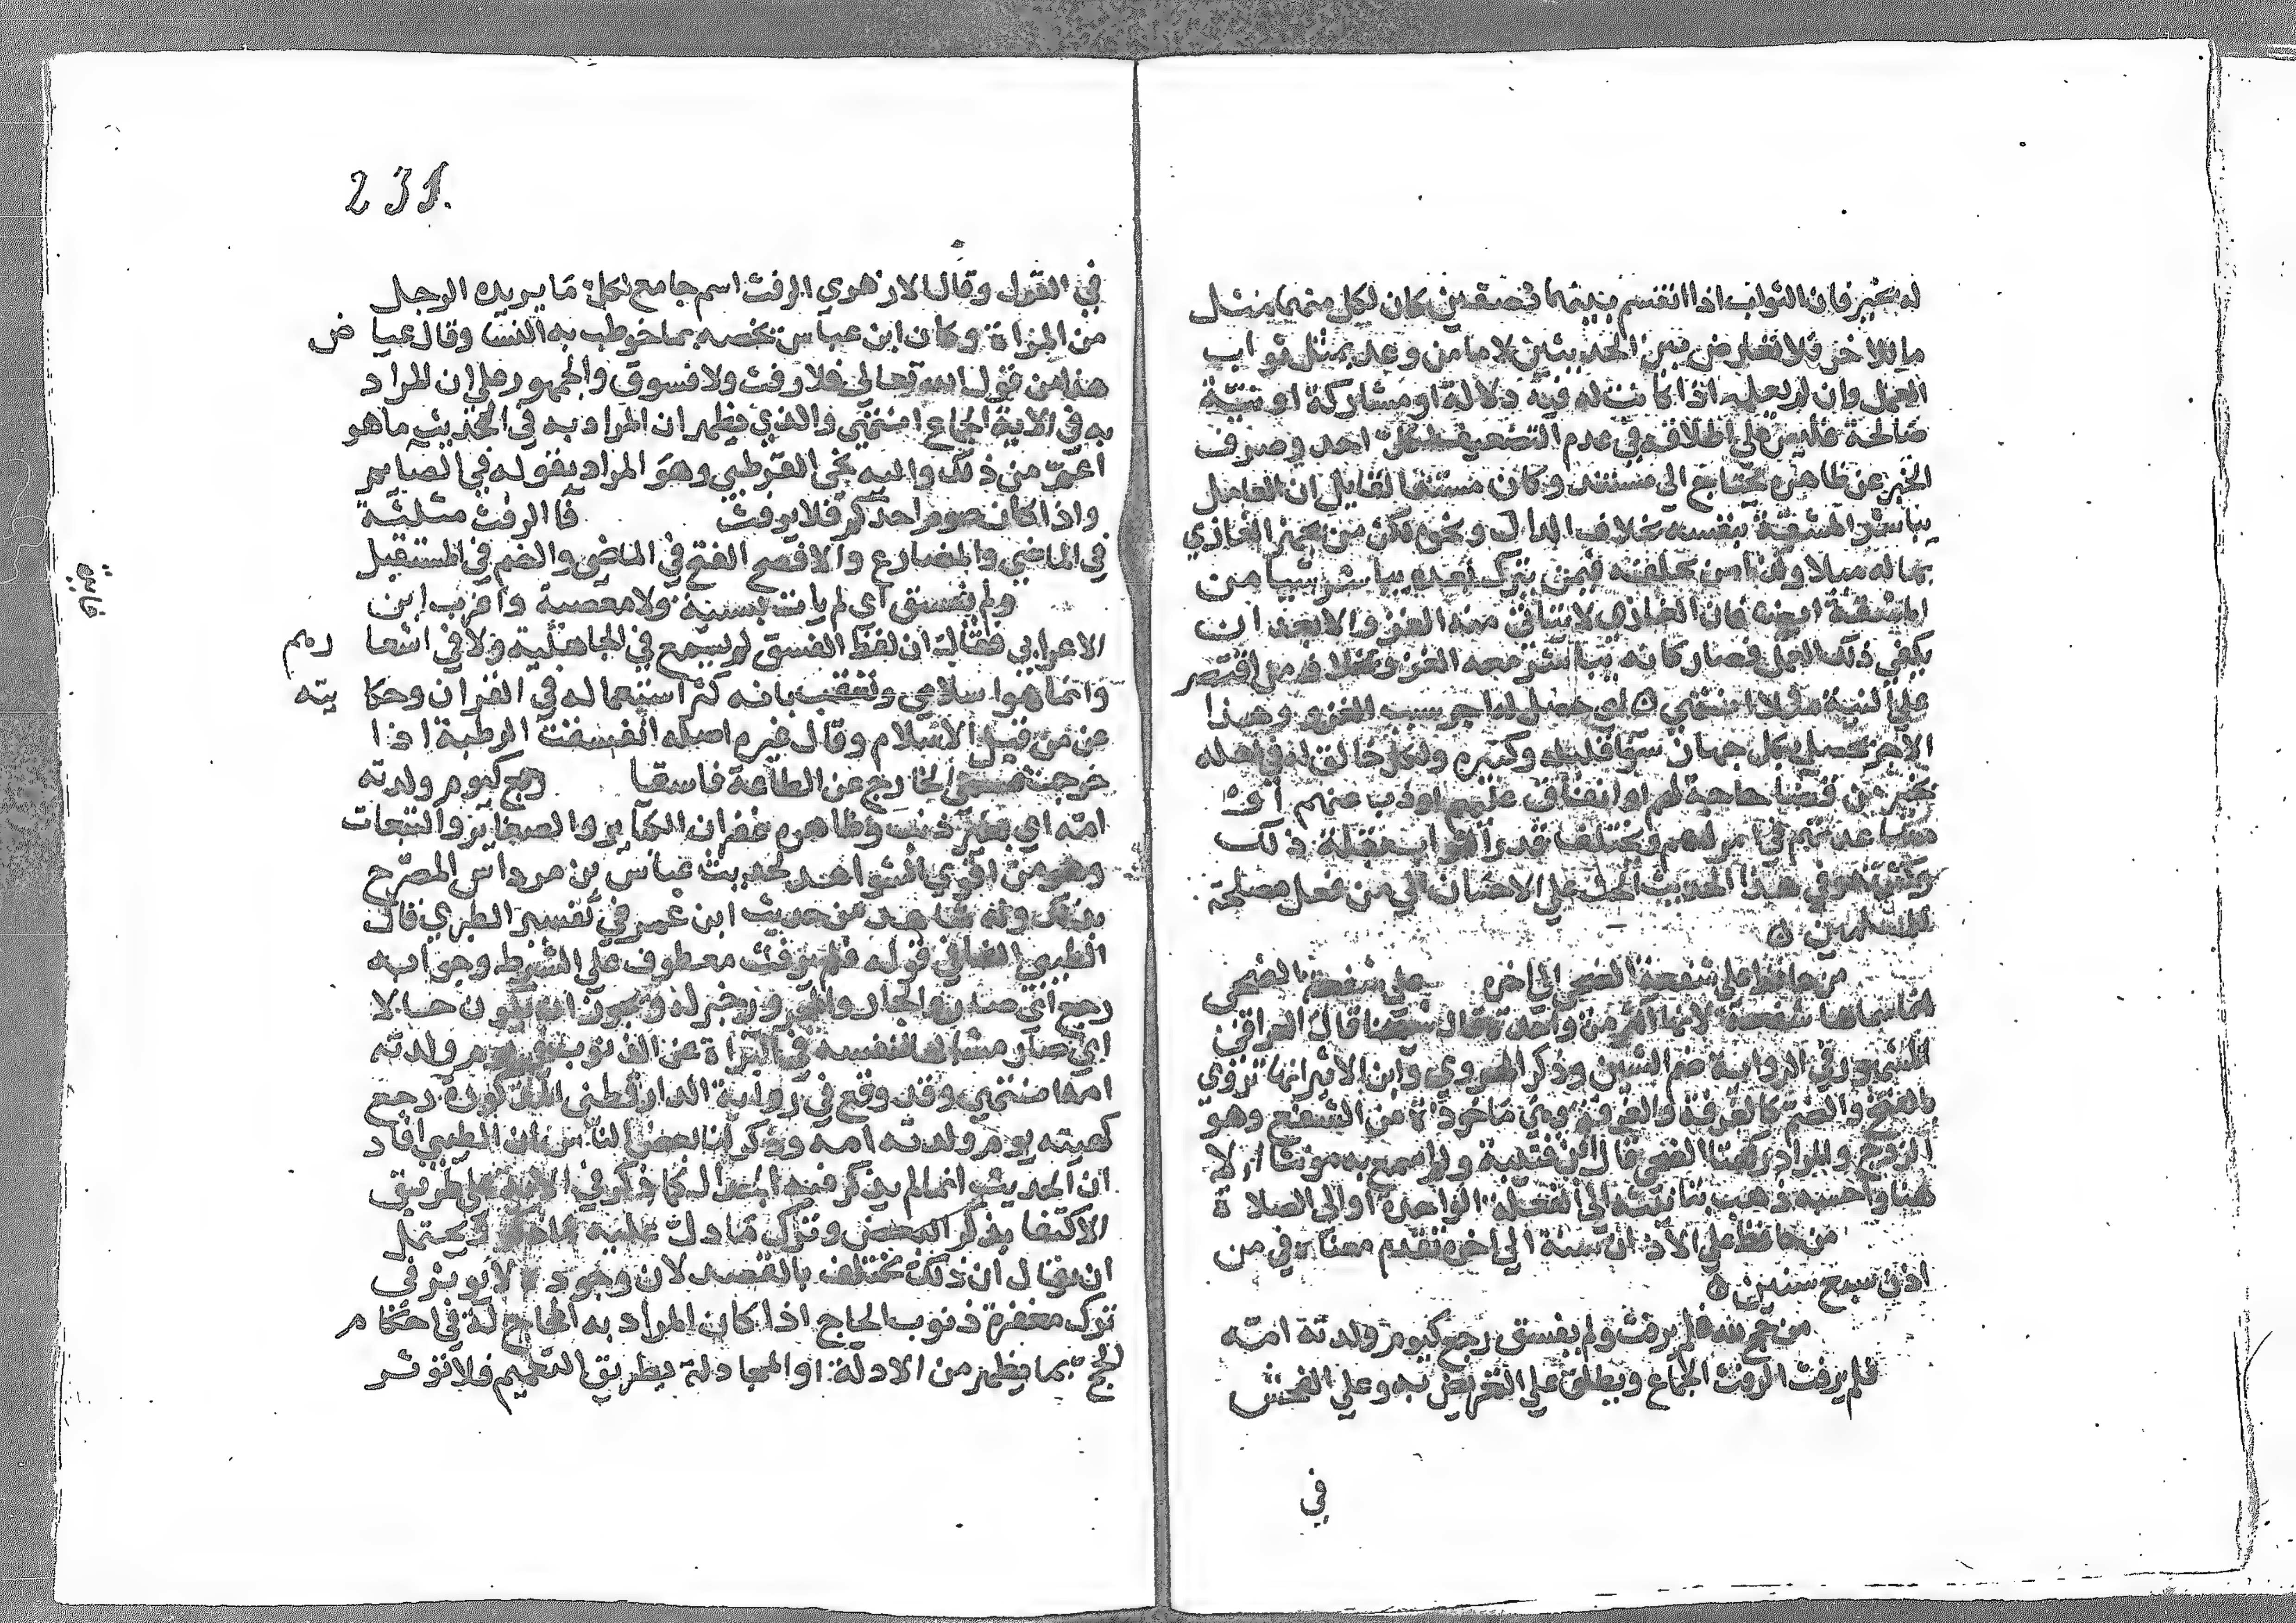 له بخير فان الثواب اذا انقسم بينهما نصفين كان لكل منهما مثل
ما للاخر فلا تعارض بين الحديثين لا ما من وعد بمثل ثواب
العمل وان لم يعمله اذا كانت له فيه دلالة او مشاركة او نية
صالحة فليس على اطلاقه في عدم التضعيف لكل احد وصرف
الخبر عن ظاهره يحتاج الى مستند وكان مستند القايل ان العامل
يباشر المشقة بنفسه بخلاف الدال ونحوه لكن من يجهز الغازي
بماله مثلا وكذا من يخلفه فيمن يترك بعده يباشر شيا من
المشقة ايضا فان الغازي لا يتاتى منه الغزو الا بعد ان
يكفي ذلك العمل فصار كانه يباشر معه الغزو بخلاف من اقتصر
على النية مثلا انتهى ه اي حصل له اجر بسبب الغزو وهذا
الاجر يحصل بكل جهاز سوا قليله وكثيره ولكل خالف له في اهله
بخير من قضا حاجة لهم او انفاق عليهم او ذب عنهم او
مساعدتهم في امر لهم ويختلف قدر الثواب بقلة ذلك
وكثرته وفي هذا الحديث الحث على الاحسان الى من فعل مصلحة
للمسلمين ه
من حافظ على شفعة الضحى الى اخره على شفعة الضحى
انما سماها شفعة لانها اكثر من واحدة وقال شيخنا قال العراقي
المشهور في الرواية ضم الشين وذكر الهروي وابن الاثير انها تروى
بالفتح والضم كالغرفة والغرفة وهي ماخوذة من الشفع وهو
الزوج والمراد ركعتا الضحى قال ابن قتيبة ولم اسمع به مونثا الا
هنا واحسبه ذهب بتانيثه الى الفعلة الواحدة او الى الصلاة
من حافظ على الاذان سنة الى اخره تقدم معناه في من
اذن سبع سنين ه
من حج لله فلم يرفث ولم يفسق رجع كيوم ولدته امه
فلم يرفث الرفث الجماع ويطلق على التعريض به وعلى الفحش
في
231.
في القول وقال الازهري الرفث اسم جامع لكل ما يريده الرجل
من المراة وكان ابن عباس يخصه بما خوطب به النسا وقال عياض
هذا من قول الله تعالى فلا رفث ولا فسوق والجمهور على ان المراد
به في الاية الجماع انتهى والذي يظهر ان المراد به في الحديث ما هو
اعم من ذلك واليه نحى القرطبي وهو المراد بقوله في الصايم
واذا كان صوم احدكم فلا يرفث فا الرفث مثلثة
في الماضي والمضارع والافصح الفتح في الماضي والضم في المستقبل
ولم يفسق اي لم يات بسيئة ولا معصية واغرب ابن
الاعرابي فقال ان لفظ الفسق لم يسمع في الجاهلية ولا في اشعارهم
وانما هو اسلامي وتعقب بانه كثر استعماله في القران وحكايته
عن من قبل الاسلام وقال غيره اصله انفسقت الرطبة اذا
خرجت فسمى الخارج عن الطاعة فاسقا رجع كيوم ولدته
امه اي بغير ذنب وظاهره غفران الكباير والصغاير والتبعات
وهو من اقوى الشواهد لحديث عباس بن مرداس المصرح
بذلك وله شاهد من حديث ابن عمر في تفسير الطبري قال
الطيبي الفا في قوله فلم يرفث معطوف على الشرط وجوابه
رجع اي صار والجار والمجرور خبر له ويجوز ان يكون حالا
اي صار مشابها لنفسه في البراة عن الذنوب في يوم ولدته
امه انتهى وقد وقع في رواية الدارقطني المذكورة رجع
كهيئته يوم ولدته امه وذكر لنا بعض الناس ان الطيبي افاد
ان الحديث انما لم يذكر فيه الجدال كما ذكر في الاية على طريق
الاكتفا بذكر البعض وترك ما دل عليه ما ذكر ويحتمل
ان يقال ان ذلك يختلف بالقصد لان وجوده لا يوثر في
ترك مغفرة ذنوب الحاج اذا كان المراد به المجادلة في احكام
الحج بما يظهر من الادلة او المجادلة بطريق التعميم فلا توثر